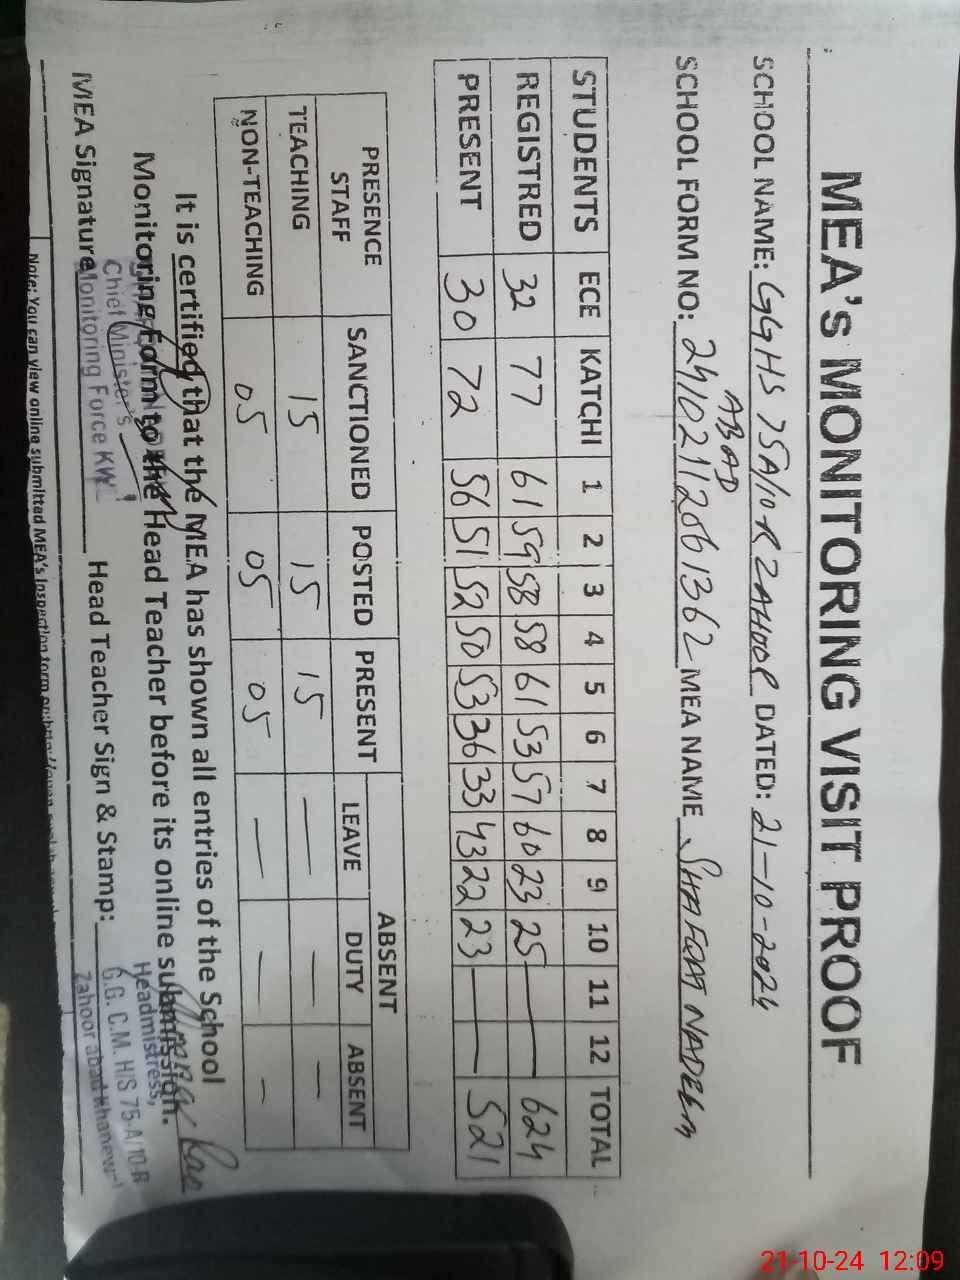 MEA's MONITORING VISIT PROOF
SCHOOL NAME: GGHS 75A/10-R ZAHOOR DATED: 21-10-2024
ABAD
SCHOOL FORM NO: 24102112061362 MEA NAME SHAFQAT NADEEM
STUDENTS ECE KATCHI 1 2 3 4 5 6 7 8 9 10 11 12 TOTAL
REGISTRED 32 77 61 59 58 58 61 53 57 60 23 25 — 624
PRESENT 30 72 56 51 52 50 53 36 33 43 22 23 — 521
PRESENCE STAFF SANCTIONED POSTED PRESENT ABSENT
LEAVE DUTY ABSENT
TEACHING 15 15 15 — — —
NON-TEACHING 05 05 05 — — —
It is certified that the MEA has shown all entries of the School
Monitoring Form to the Head Teacher before its online submission.
MEA Signature Head Teacher Sign & Stamp:
Chief Minister's
Monitoring Force KWL
Headmistress,
G.G. C.M. H/S 75-A/10-R
Zahoor abad Khanewal
Note: You can view online submitted MEA's Inspection form on:
21-10-24 12:09